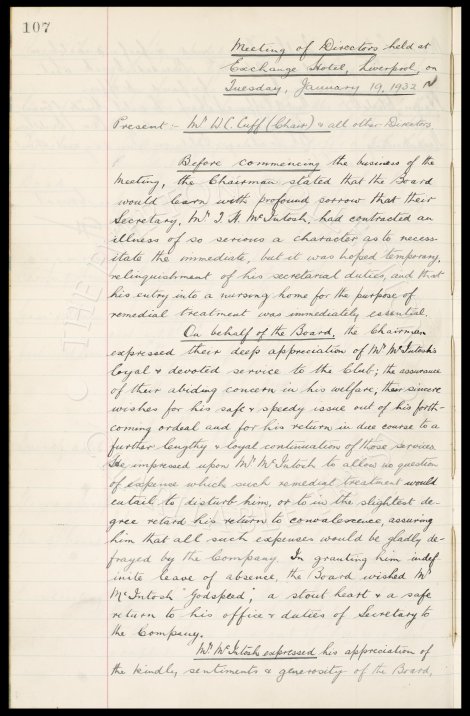 107
Meeting of Directors held at
Exchange Hotel, Liverpool, on
Tuesday, January 19, 1932
Present:- Mr W.C. Cuff (Chair) & all other Directors
Before commencing the business of the
Meeting, the Chairman stated that the Board
would learn with profound sorrow that their
Secretary, Mr T. H. McIntosh, had contracted an
illness of so serious a character as to necess-
itate the immediate, but it was hoped temporary,
relinquishment of his secretarial duties, and that
his entry into a nursing home for the purpose of
remedial treatment was immediately essential.
On behalf of the Board, the Chairman
expressed their deep appreciation of Mr McIntosh's
loyal & devoted service to the Club; the assurance
of their abiding concern in his welfare, their sincere
wishes for his safe & speedy issue out of his forth-
coming ordeal and for his return in due course to a
further lengthy & loyal continuation of those services.
He impressed upon Mr McIntosh to allow no question
of expense which such remedial treatment would
entail to disturb him, or to in the slightest de-
gree retard his return to convalescence, assuring
him that all such expenses would be gladly de-
frayed by the Company. In granting him indef-
inite leave of absence, the Board wished Mr
McIntosh "Godspeed," a stout heart & a safe
return to his office & duties of Secretary to
the Company.
Mr McIntosh expressed his appreciation of
the kindly sentiments & generosity of the Board,